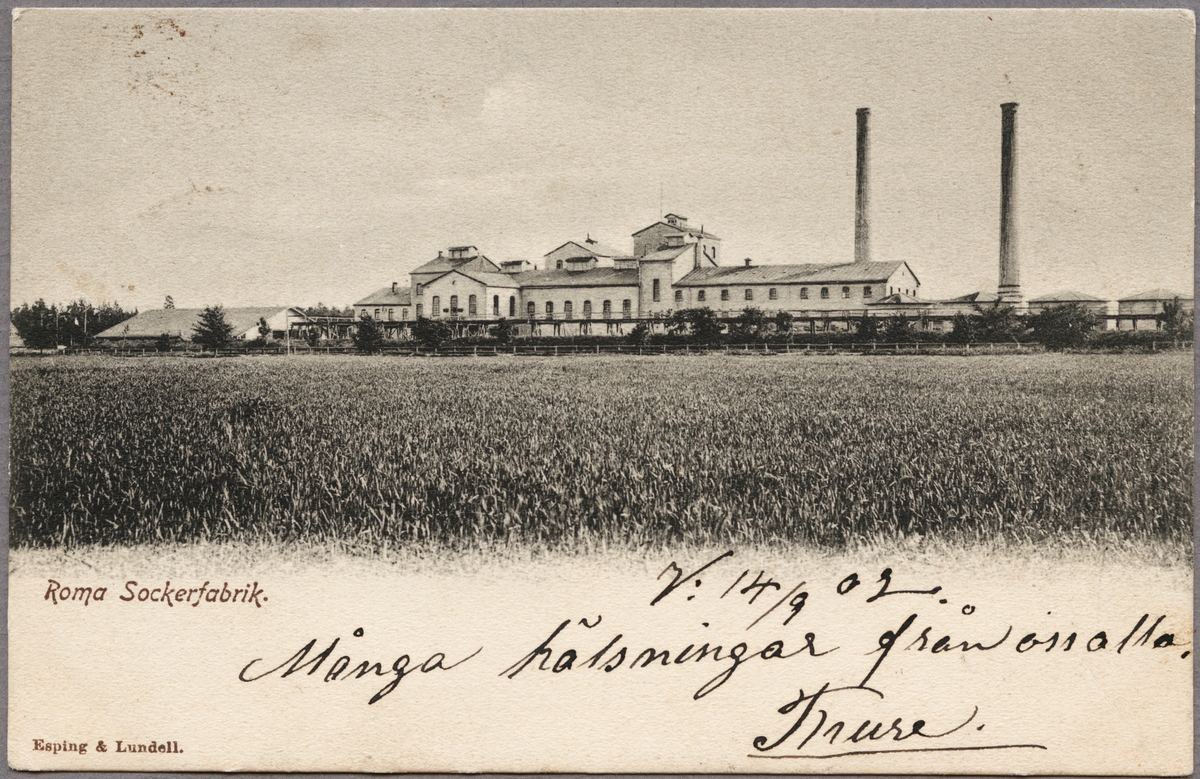 Roma Sockerfabrik.
V: 14/9 02.
Många hälsningar från oss alla.
Thure.
Esping & Lundell.